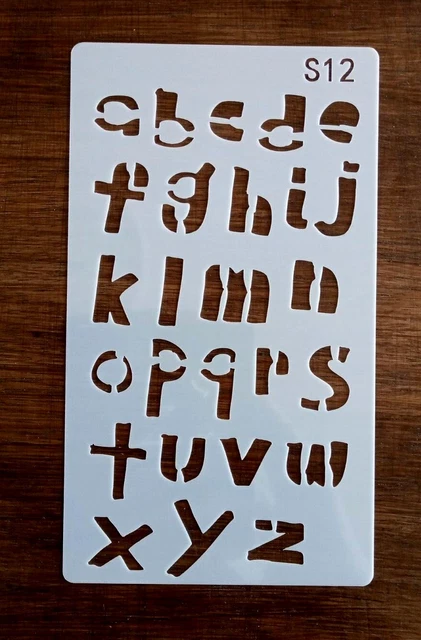 S12
a b c d e
f g h i j
k l m n
o p q r s
t u v w
x y z